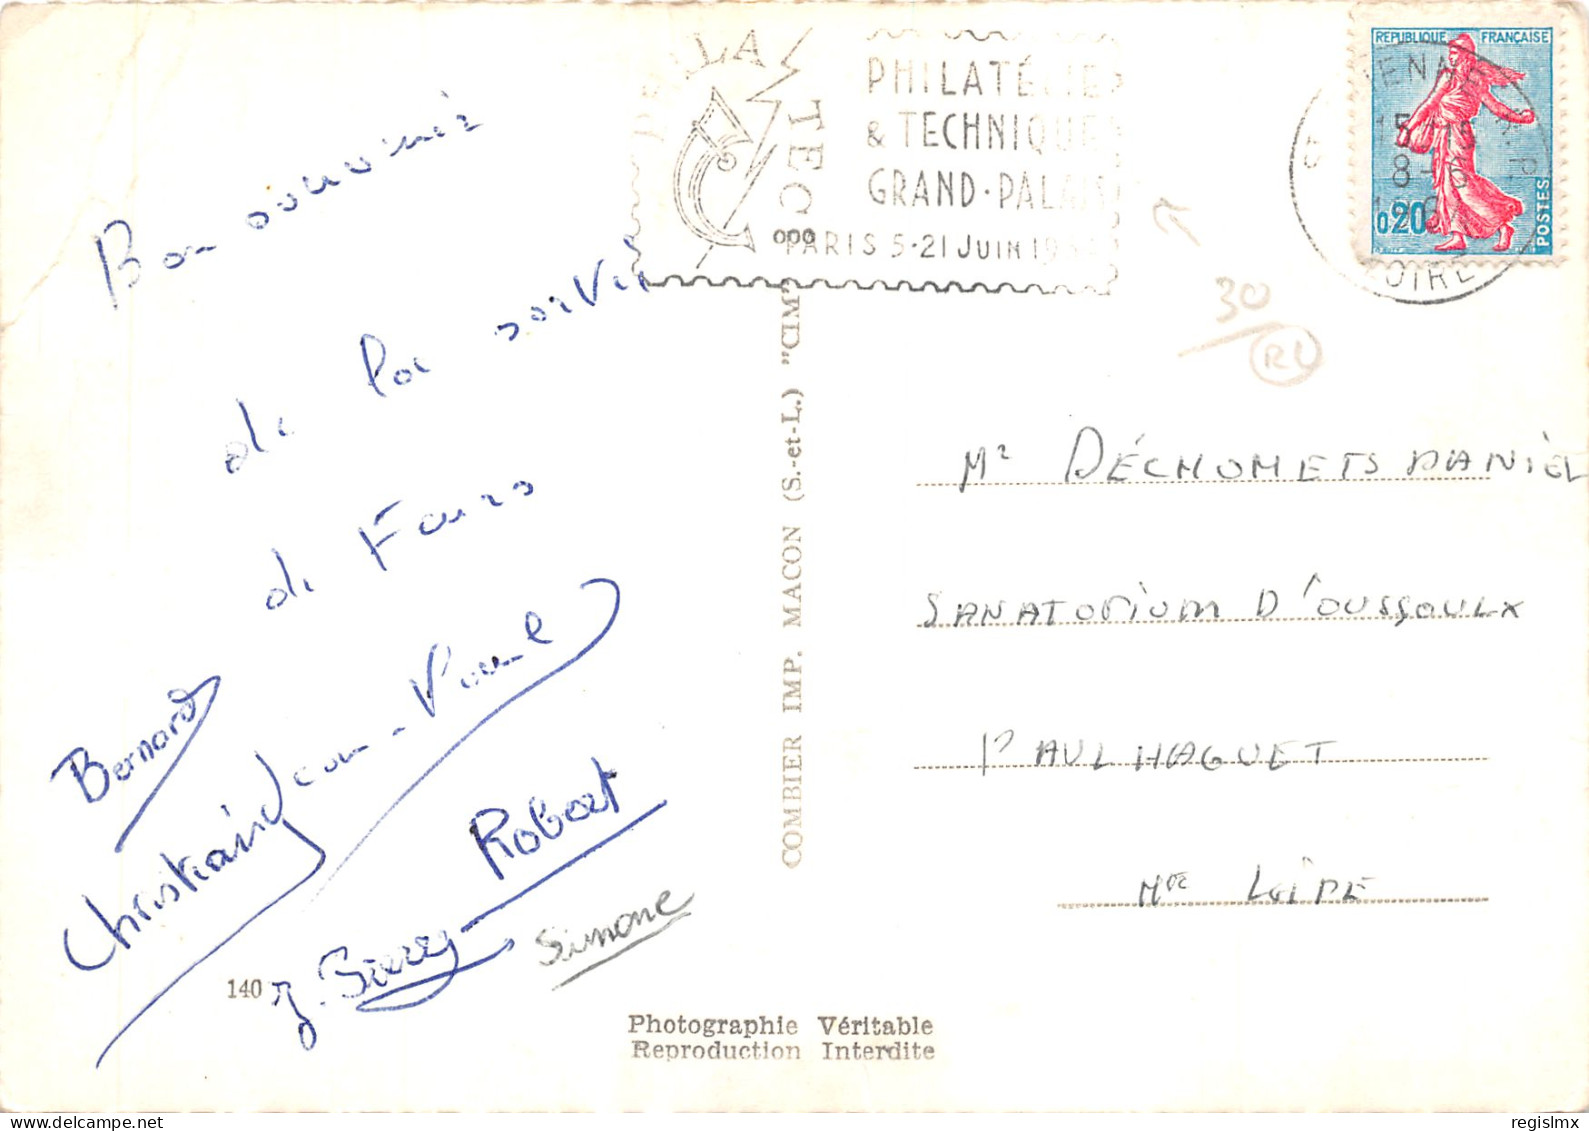 Bon souvenir
de la soirée
de Fours
Bernard
Christian
Jean-Paul
Robert
J. Pierre
Simone
140
PHILATEC
PHILATÉLIE
& TECHNIQUES
GRAND-PALAIS
PARIS 5-21 JUIN 1964
REPUBLIQUE FRANÇAISE
0,20
POSTES
15 H 15
8-6
LOIRE
30
RL
COMBIER IMP. MACON (S.-et-L.) "CIM"
Mr DÉCHOMETS DANIEL
SANATORIUM D'OUSSOULX
PAULHAGUET
Hte LOIRE
Photographie Véritable
Reproduction Interdite
regislmx